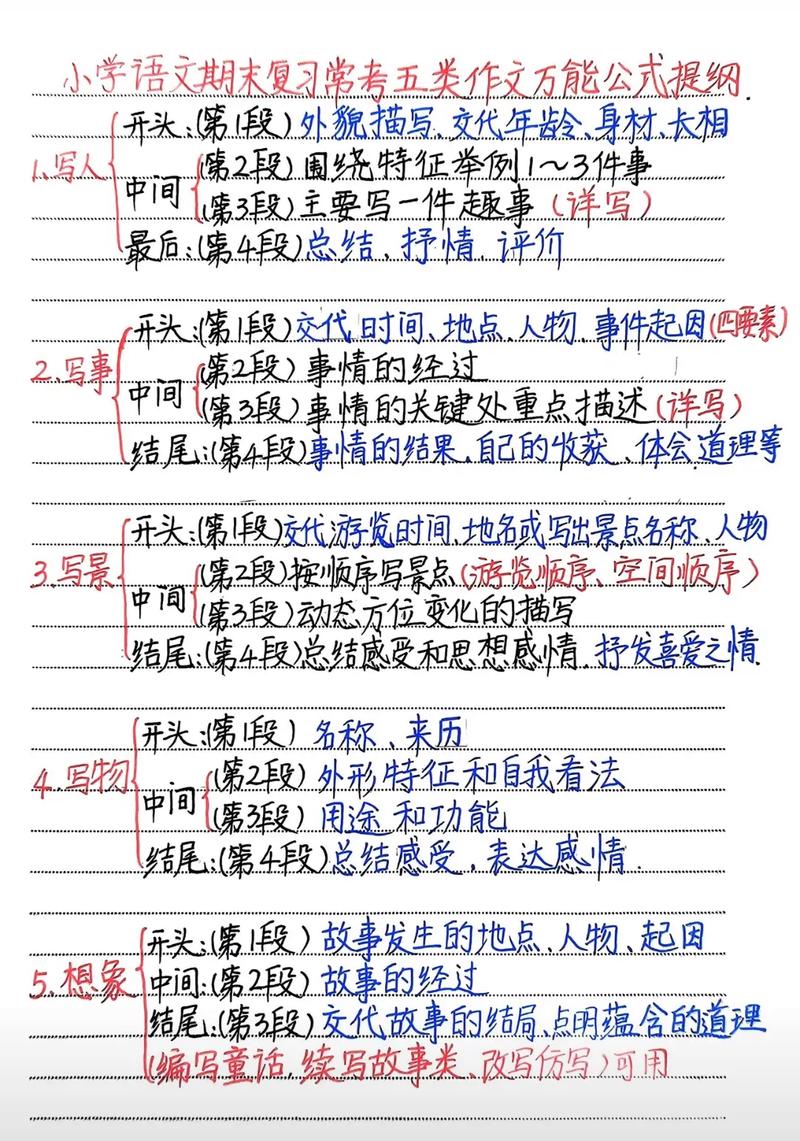 小学语文期末复习常考五类作文万能公式提纲.
1.写人
开头:(第1段)外貌描写、交代年龄、身材、长相
中间
(第2段)围绕特征举例1～3件事
(第3段)主要写一件趣事(详写)
最后:(第4段)总结、抒情、评价
2.写事
开头:(第1段)交代时间、地点、人物、事件起因(四要素)
中间
(第2段)事情的经过
(第3段)事情的关键处重点描述(详写)
结尾:(第4段)事情的结果,自己的收获、体会道理等
3.写景
开头:(第1段)交代游览时间、地名或写出景点名称、人物
中间
(第2段)按顺序写景点(游览顺序、空间顺序)
(第3段)动态方位变化的描写
结尾:(第4段)总结感受和思想感情.抒发喜爱之情.
4.写物
开头:(第1段)名称、来历
中间
(第2段)外形特征和自我看法
(第3段)用途和功能
结尾:(第4段)总结感受,表达感情.
5.想象
开头:(第1段)故事发生的地点、人物、起因
中间:(第2段)故事的经过
结尾:(第3段)交代故事的结局、点明蕴含的道理
(编写童话,续写故事类、改写仿写)可用